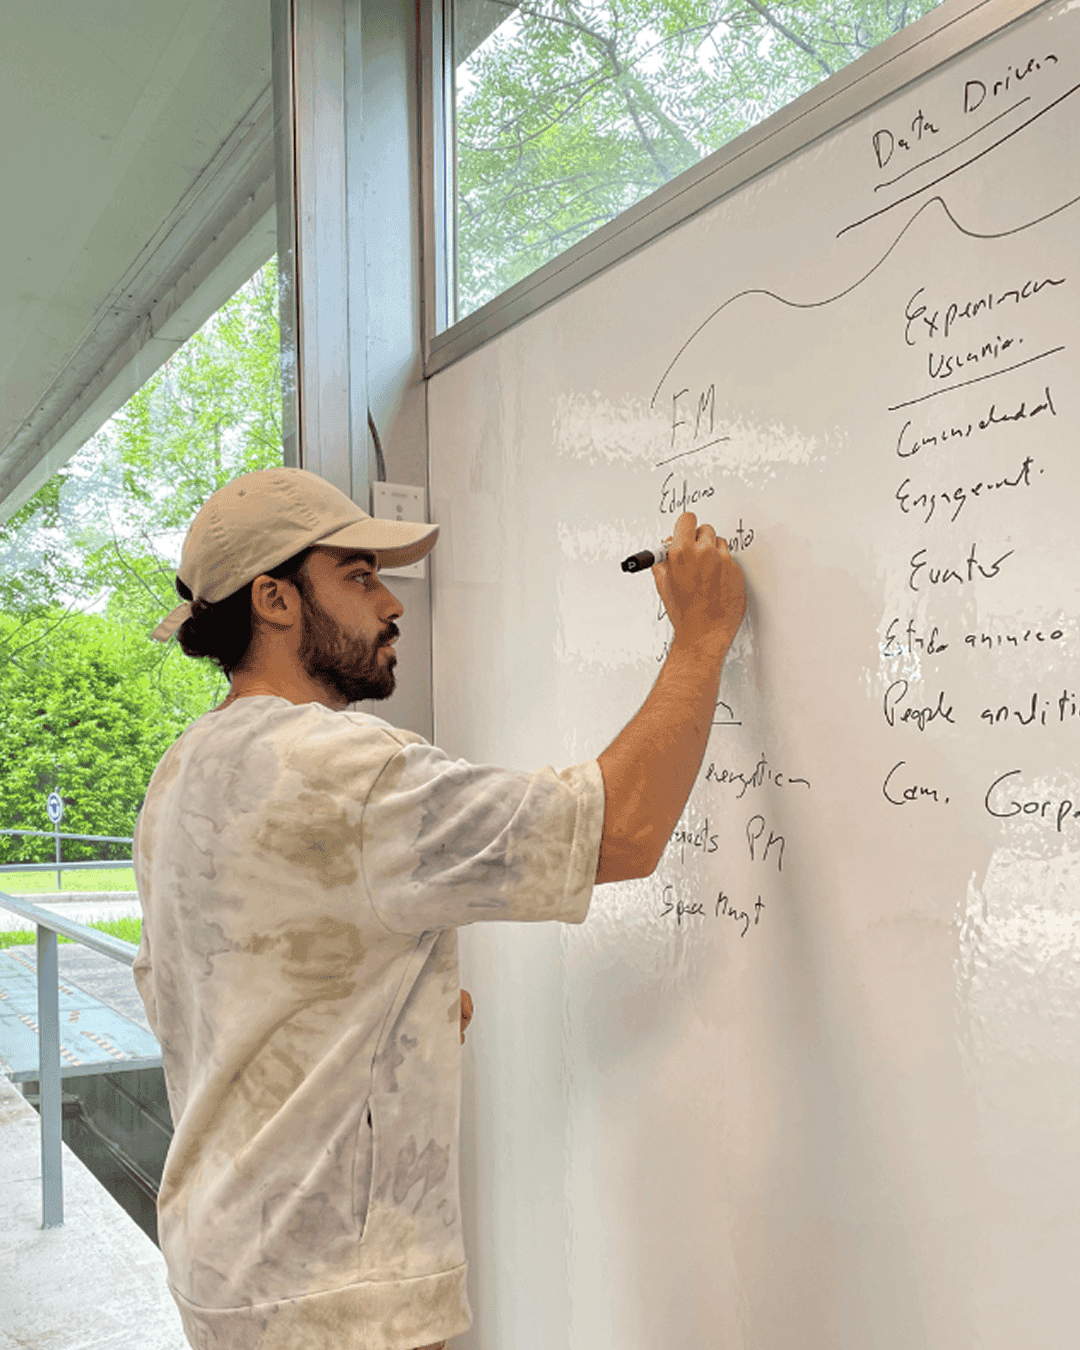 Data Driven
FM
Edificios
energetica
PM
Space Mngt
Experiencia
Usuario.
Comunidad
Engagement.
Eventos
Estado animico
People
Com. Corp